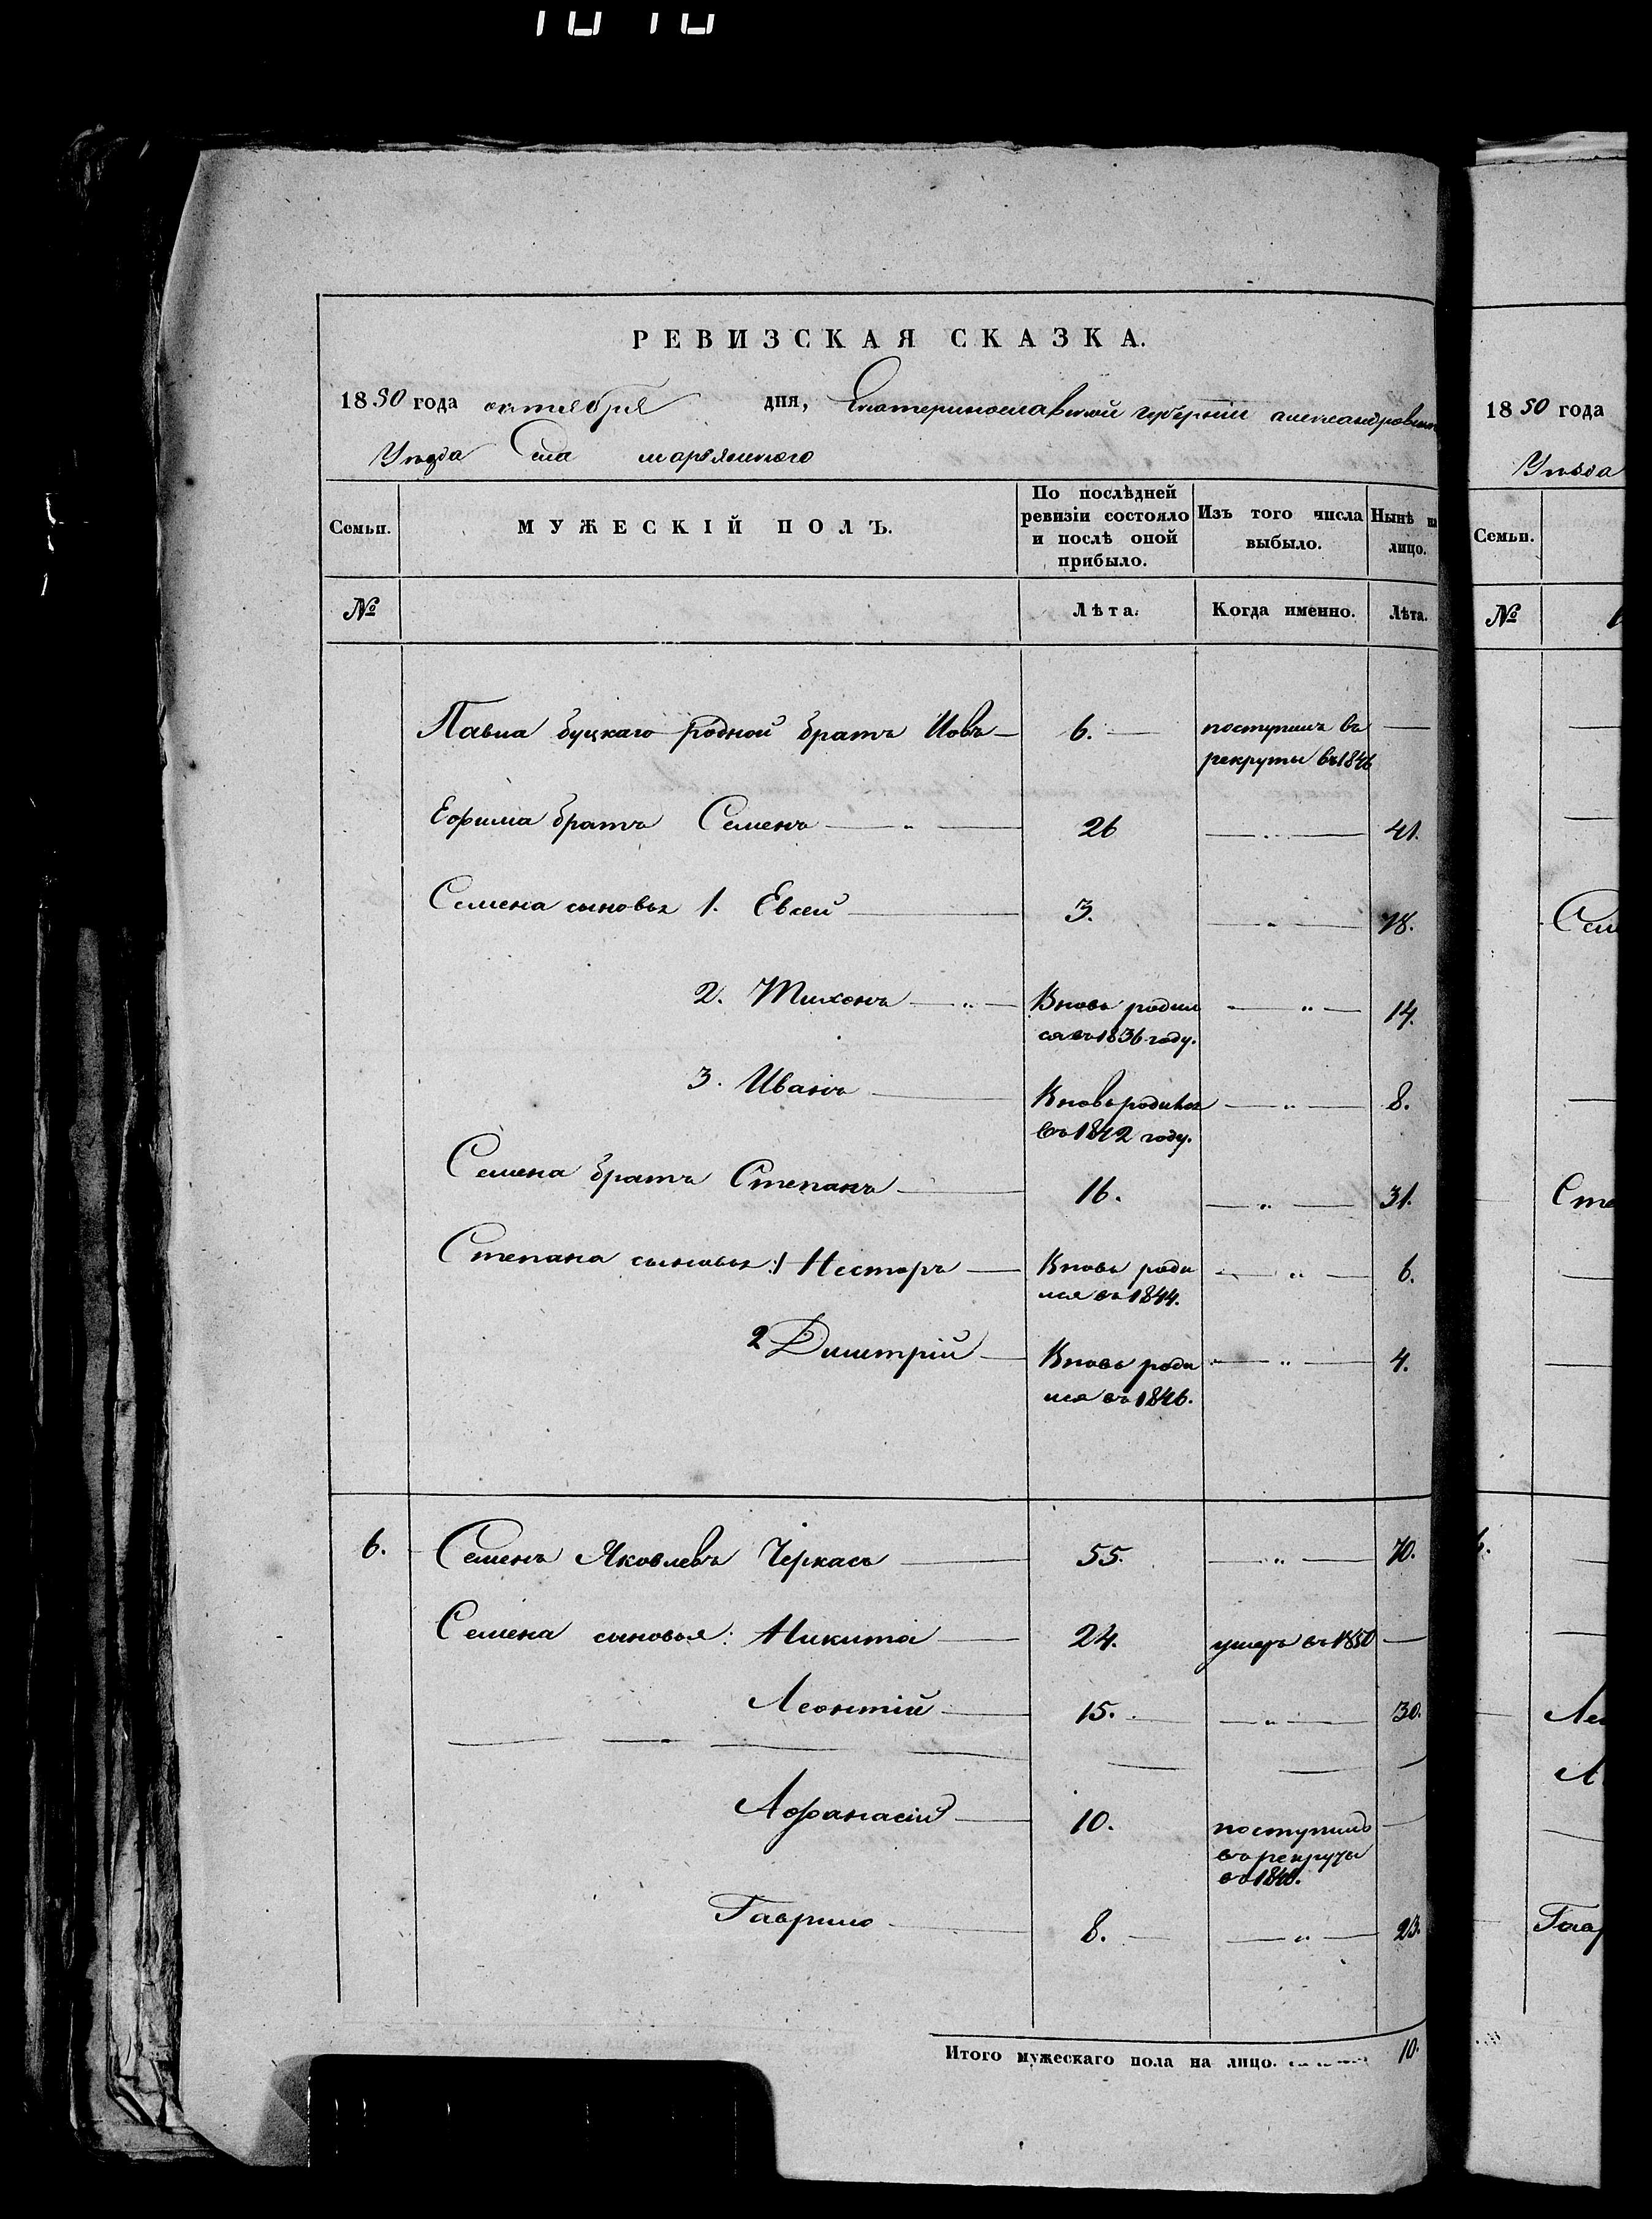 РЕВИЗСКАЯ СКАЗКА.
1850 года октября дня, Екатеринославской губернии александровскаго
Уезда Села марьянского
Семьи. МУЖЕСКІЙ ПОЛЪ. По послѣдней ревизіи состояло и послѣ оной прибыло. Изъ того числа выбыло. Нынѣ на лицо.
№ Лѣта. Когда именно. Лѣта.
Павла буцкаго родной братъ Иовъ 6. поступилъ въ рекруты въ 1846
Ефима братъ Семенъ 26 41.
Семена сыновья 1. Евсей 3. 18.
2. Тихонъ Вновь родился въ 1836 году. 14.
3. Иванъ Вновь родился въ 1842 году. 8.
Семена братъ Степанъ 16. 31.
Степана сыновья: 1 Несторъ Вновь родился въ 1844. 6.
2 Димитрій Вновь родился въ 1846. 4.
6. Семенъ Яковлевъ Черкасъ 55. 70.
Семена сыновья: Никита 24. умеръ въ 1850
Леонтій 15. 30.
Афанасій 10. поступилъ въ рекруты в
Гаврило 8. 23.
Итого мужескаго пола на лицо. 10.
1850 года
Уѣзда
Семьи.
№